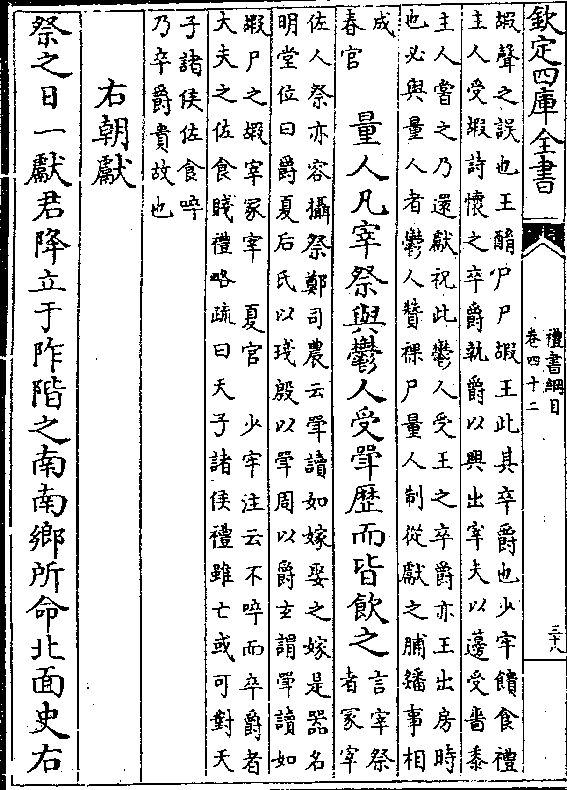 欽定四庫全書
禮書綱目
卷四十二
三十八
嘏聲之誤也王酳尸尸嘏王此其卒爵也少牢饋食禮
主人受嘏詩懷之卒爵執爵以興出宰夫以籩受嗇黍
主人嘗之乃還獻祝此鬱人受王之卒爵亦王出房時
也必與量人者鬱人贊祼尸量人制從獻之脯燔事相
成
春官
量人凡宰祭與鬱人受斝歷而皆飲之
言宰祭
者冢宰
佐人祭亦容攝祭鄭司農云斝讀如嫁娶之嫁是器名
明堂位曰爵夏后氏以琖殷以斝周以爵玄謂斝讀如
嘏尸之嘏宰冢宰 夏官 少牢注云不啐而卒爵者
大夫之佐食賤禮略疏曰天子諸侯禮雖亡或可對天
子諸侯佐食啐
乃卒爵貴故也
右朝獻
祭之日一獻君降立于阼階之南南鄉所命北面史右